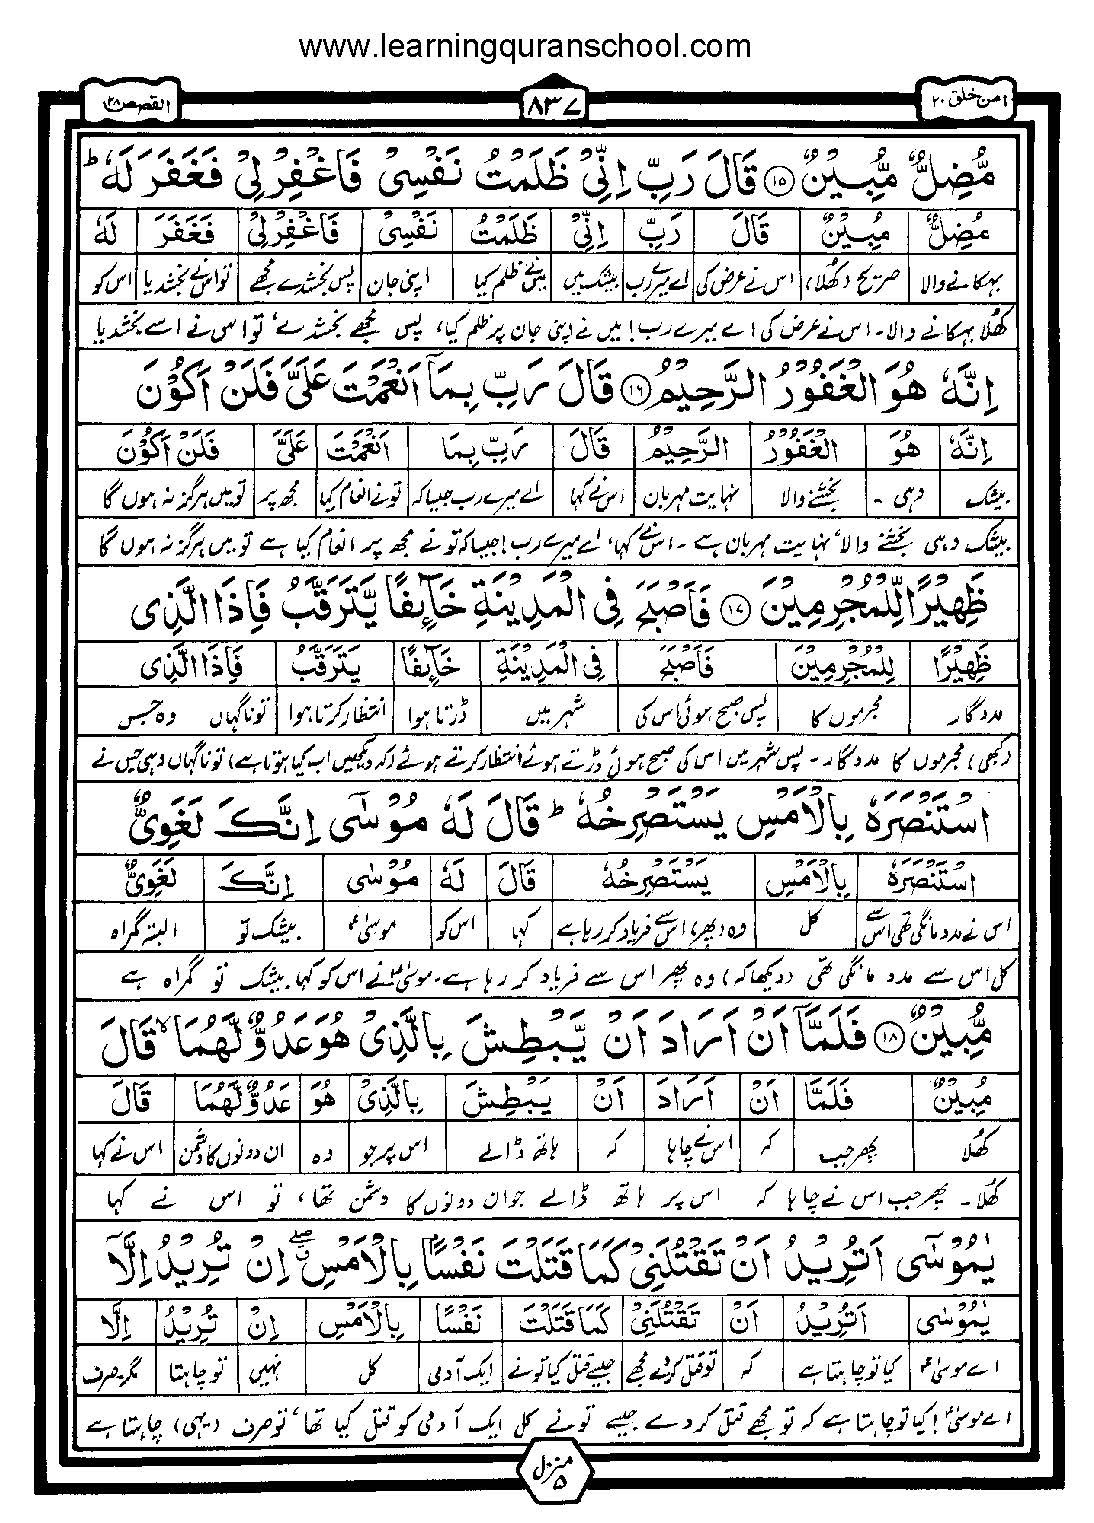 www.learningquranschool.com
امن خلق ۲۰
۸۳۷
القصص ۲۸
مُّضِلٌّ مُّبِيْنٌ ۝۱۵ قَالَ رَبِّ اِنِّیْ ظَلَمْتُ نَفْسِیْ فَاغْفِرْ لِیْ فَغَفَرَ لَهٗ ؕ
مُضِلٌّ مُبِيْنٌ قَالَ رَبِّ اِنِّیْ ظَلَمْتُ نَفْسِیْ فَاغْفِرْ لِیْ فَغَفَرَ لَهٗ
بہکانے والا صریح (کھلا) اس نے عرض کی اے میرے رب بیشک میں میں نے ظلم کیا اپنی جان پس بخشدے مجھے تو اس نے بخشدیا اس کو
کھلا بہکانے والا۔ اس نے عرض کی اے میرے رب! میں نے اپنی جان پر ظلم کیا، پس مجھے بخشدے، تو اس نے اسے بخشدیا
اِنَّهٗ هُوَ الْغَفُوْرُ الرَّحِيْمُ ۝۱۶ قَالَ رَبِّ بِمَاۤ اَنْعَمْتَ عَلَیَّ فَلَنْ اَكُوْنَ
اِنَّهٗ هُوَ الْغَفُوْرُ الرَّحِيْمُ قَالَ رَبِّ بِمَا اَنْعَمْتَ عَلَیَّ فَلَنْ اَكُوْنَ
بیشک وہی۔ بخشنے والا نہایت مہربان اس نے کہا اے میرے رب جیسا کہ تو نے انعام کیا مجھ پر تو میں ہرگز نہ ہوں گا
بیشک وہی بخشنے والا، نہایت مہربان ہے۔ اس نے کہا، اے میرے رب! جیسا کہ تو نے مجھ پر انعام کیا ہے تو میں ہرگز نہ ہوں گا
ظَهِيْرًا لِّلْمُجْرِمِيْنَ ۝۱۷ فَاَصْبَحَ فِی الْمَدِيْنَةِ خَآىِٕفًا يَّتَرَقَّبُ فَاِذَا الَّذِی
ظَهِيْرًا لِلْمُجْرِمِيْنَ فَاَصْبَحَ فِی الْمَدِيْنَةِ خَآىِٕفًا يَتَرَقَّبُ فَاِذَا الَّذِی
مددگار مجرموں کا پس صبح ہوئی اس کی شہر میں ڈرتا ہوا انتظار کرتا ہوا تو ناگہاں وہ جس
(کبھی) مجرموں کا مددگار۔ پس شہر میں اس کی صبح ہوئی ڈرتے ہوئے انتظار کرتے ہوئے (کہ دیکھیں اب کیا ہوتا ہے) تو ناگہاں وہی جس نے
اسْتَنْصَرَهٗ بِالْاَمْسِ يَسْتَصْرِخُهٗ ؕ قَالَ لَهٗ مُوْسٰۤی اِنَّكَ لَغَوِیٌّ
اسْتَنْصَرَهٗ بِالْاَمْسِ يَسْتَصْرِخُهٗ قَالَ لَهٗ مُوْسٰی اِنَّكَ لَغَوِیٌّ
اس نے مدد مانگی تھی اس سے کل وہ (پھر) اس سے فریاد کر رہا ہے کہا اس کو موسیٰؑ بیشک تو البتہ گمراہ
کل اس سے مدد مانگی تھی (دیکھا کہ) وہ پھر اس سے فریاد کر رہا ہے۔ موسیٰؑ نے اس کو کہا۔ بیشک تو گمراہ ہے
مُّبِيْنٌ ۝۱۸ فَلَمَّاۤ اَنْ اَرَادَ اَنْ يَّبْطِشَ بِالَّذِیْ هُوَ عَدُوٌّ لَّهُمَا ۙ قَالَ
مُبِيْنٌ فَلَمَّا اَنْ اَرَادَ اَنْ يَبْطِشَ بِالَّذِیْ هُوَ عَدُوٌّ لَّهُمَا قَالَ
کھلا پھر جب کہ اس نے چاہا کہ ہاتھ ڈالے اس پر جو وہ ان دونوں کا دشمن اس نے کہا
کھلا۔ پھر جب اس نے چاہا کہ اس پر ہاتھ ڈالے جو ان دونوں کا دشمن تھا، تو اس نے کہا
يٰمُوْسٰۤی اَتُرِيْدُ اَنْ تَقْتُلَنِیْ كَمَا قَتَلْتَ نَفْسًۢا بِالْاَمْسِ ۖۗ اِنْ تُرِيْدُ اِلَّاۤ
يٰمُوْسٰی اَتُرِيْدُ اَنْ تَقْتُلَنِیْ كَمَا قَتَلْتَ نَفْسًا بِالْاَمْسِ اِنْ تُرِيْدُ اِلَّا
اے موسیٰؑ کیا تو چاہتا ہے کہ تو قتل کر دے مجھے جیسے قتل کیا تو نے ایک آدمی کل نہیں تو چاہتا مگر۔ صرف
اے موسیٰؑ! کیا تو چاہتا ہے کہ تو مجھے قتل کر دے جیسے تو نے کل ایک آدمی کو قتل کیا تھا، تو صرف (یہی) چاہتا ہے
منزل ۵